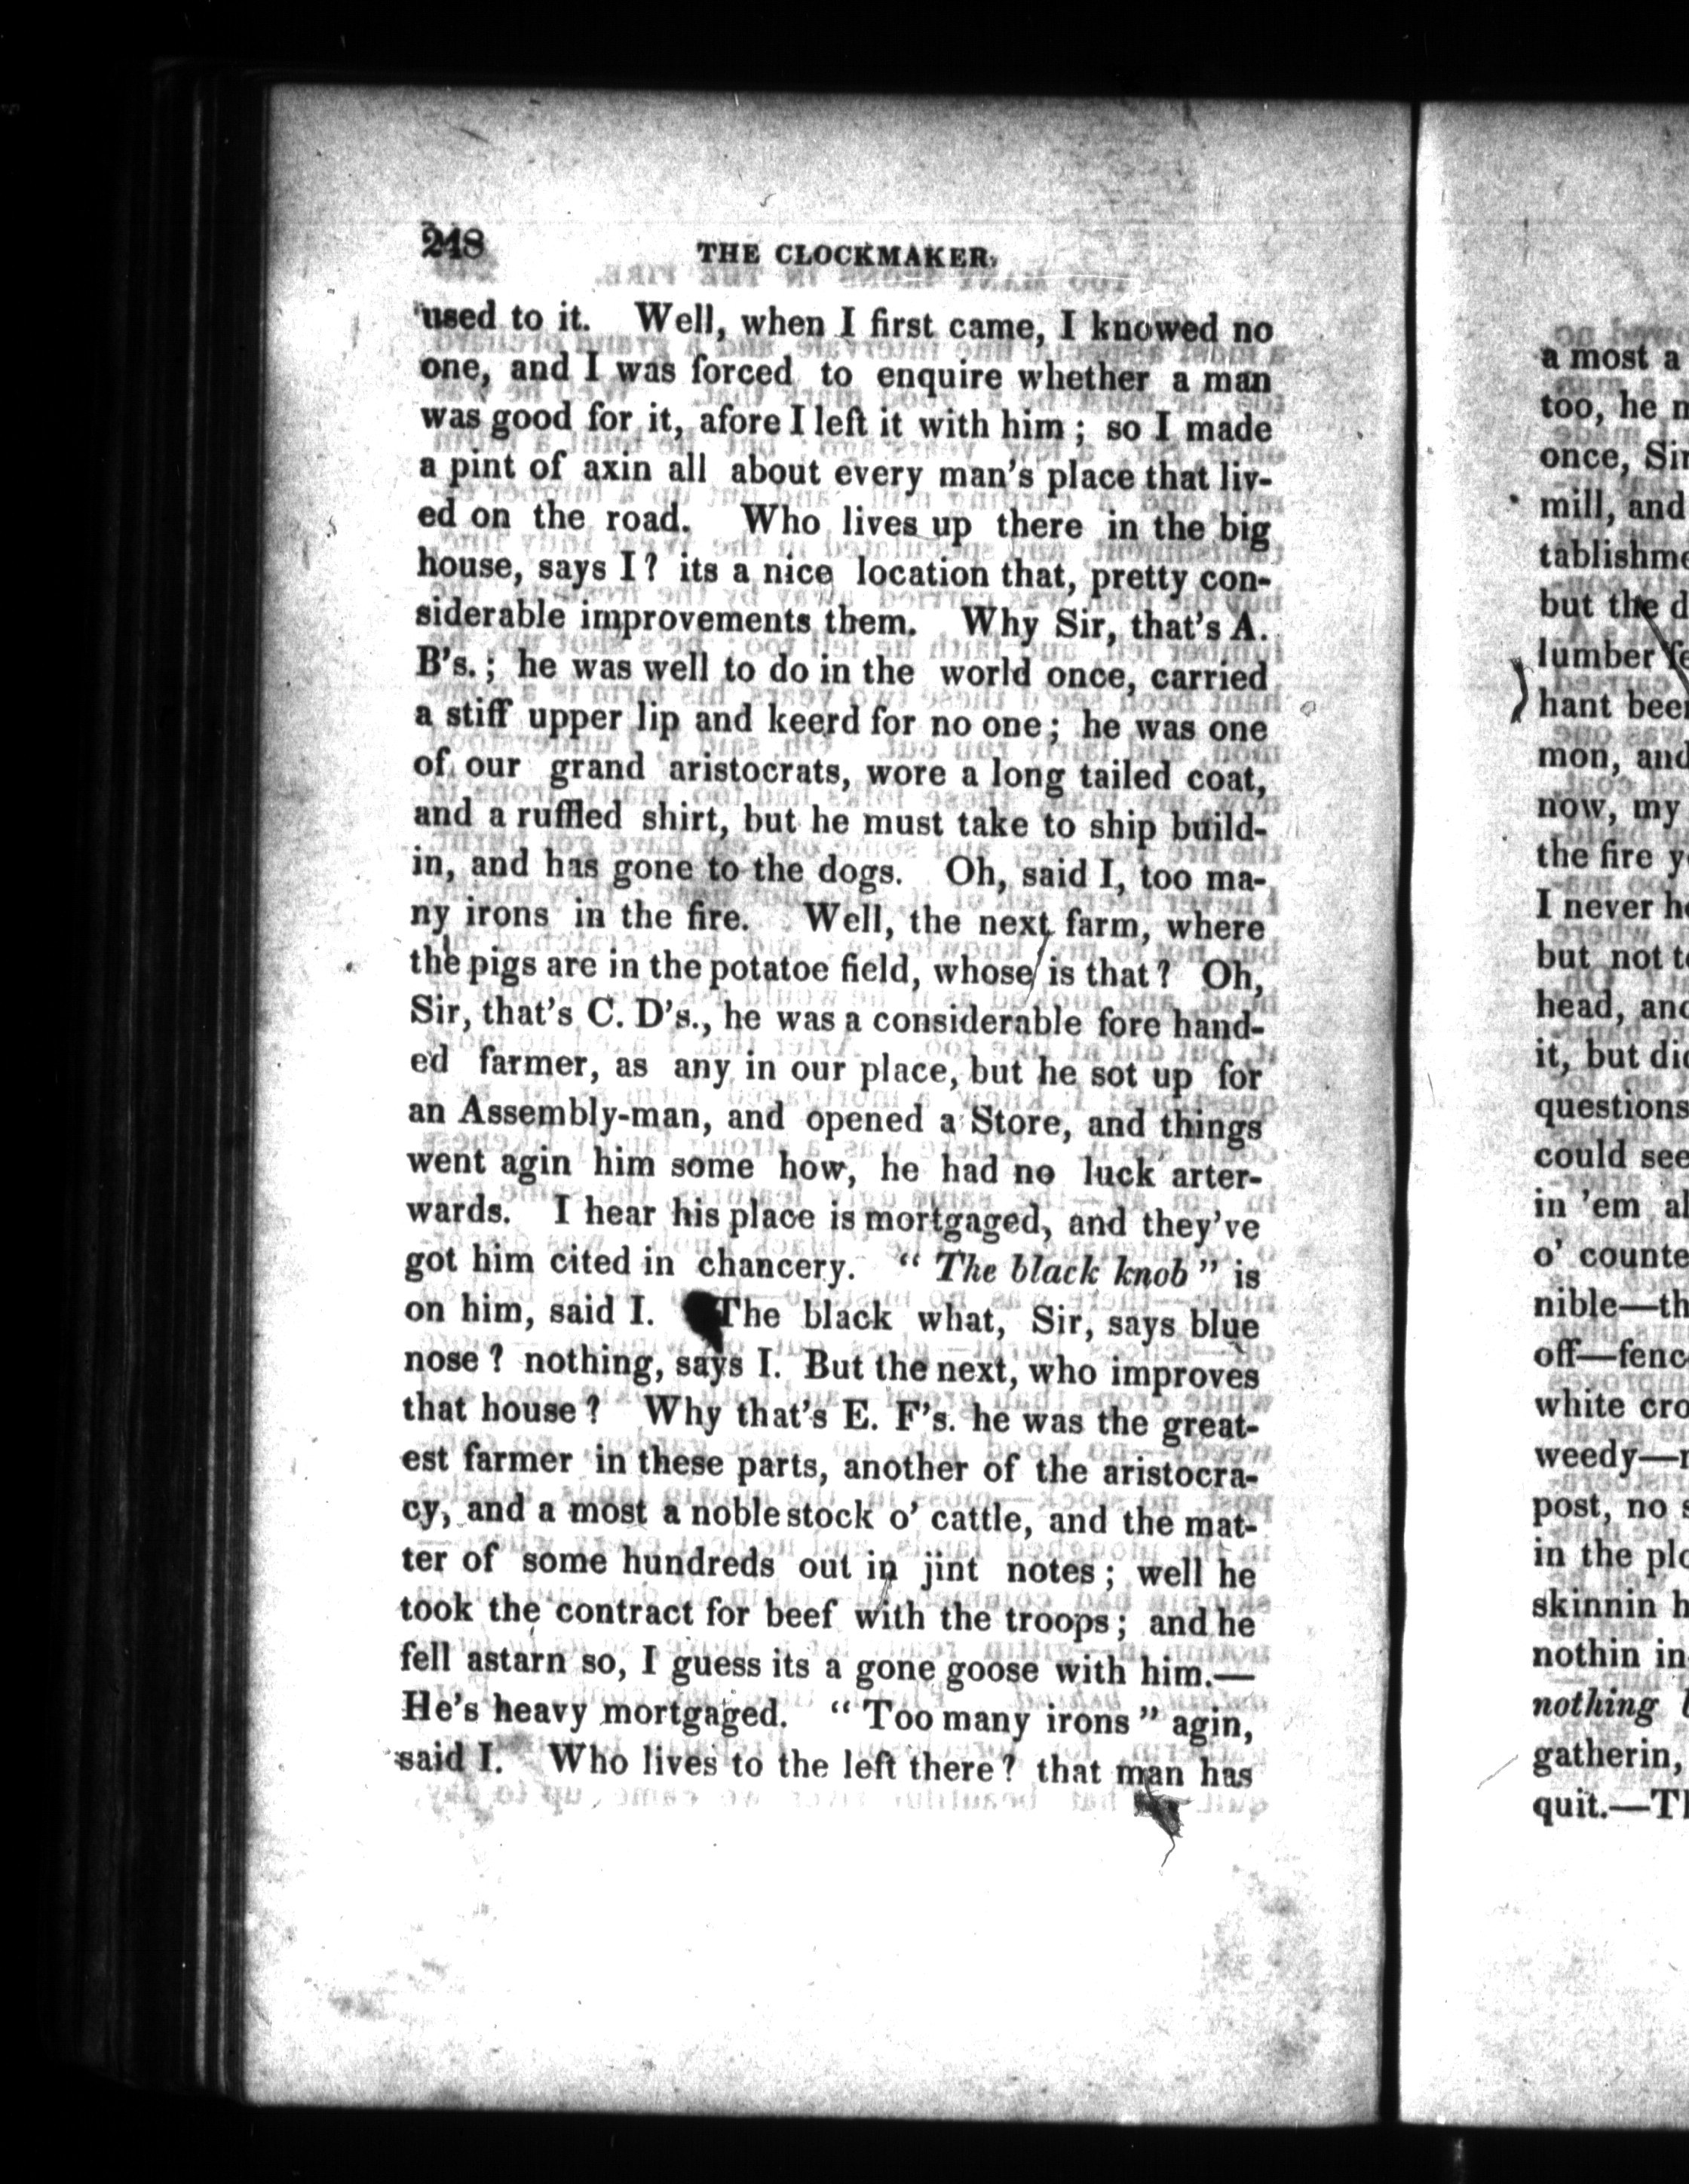 248
THE CLOCKMAKER.
used to it. Well, when I first came, I knowed no
one, and I was forced to enquire whether a man
was good for it, afore I left it with him ; so I made
a pint of axin all about every man's place that liv-
ed on the road. Who lives up there in the big
house, says I? its a nice location that, pretty con-
siderable improvements them. Why Sir, that's A.
B's. ; he was well to do in the world once, carried
a stiff upper lip and keerd for no one ; he was one
of our grand aristocrats, wore a long tailed coat,
and a ruffled shirt, but he must take to ship build-
in, and has gone to the dogs. Oh, said I, too ma-
ny irons in the fire. Well, the next farm, where
the pigs are in the potatoe field, whose is that ? Oh,
Sir, that's C. D's., he was a considerable fore hand-
ed farmer, as any in our place, but he sot up for
an Assembly-man, and opened a Store, and things
went agin him some how, he had no luck arter-
wards. I hear his place is mortgaged, and they've
got him cited in chancery. " The black knob " is
on him, said I. The black what, Sir, says blue
nose ? nothing, says I. But the next, who improves
that house ? Why that's E. F's. he was the great-
est farmer in these parts, another of the aristocra-
cy, and a most a noble stock o' cattle, and the mat-
ter of some hundreds out in jint notes ; well he
took the contract for beef with the troops ; and he
fell astarn so, I guess its a gone goose with him.—
He's heavy mortgaged. " Too many irons " agin,
said I. Who lives to the left there ? that man has
a most a
too, he
once,
mill, and
but the
lumber
hant
mon, and
now, my
the fire
I never
but not
head,
it, but
questions
could see
in 'em
o'
nible—
off—
white
weedy—
post, no
in the
skinnin
nothin in
nothing
gatherin,
quit.—